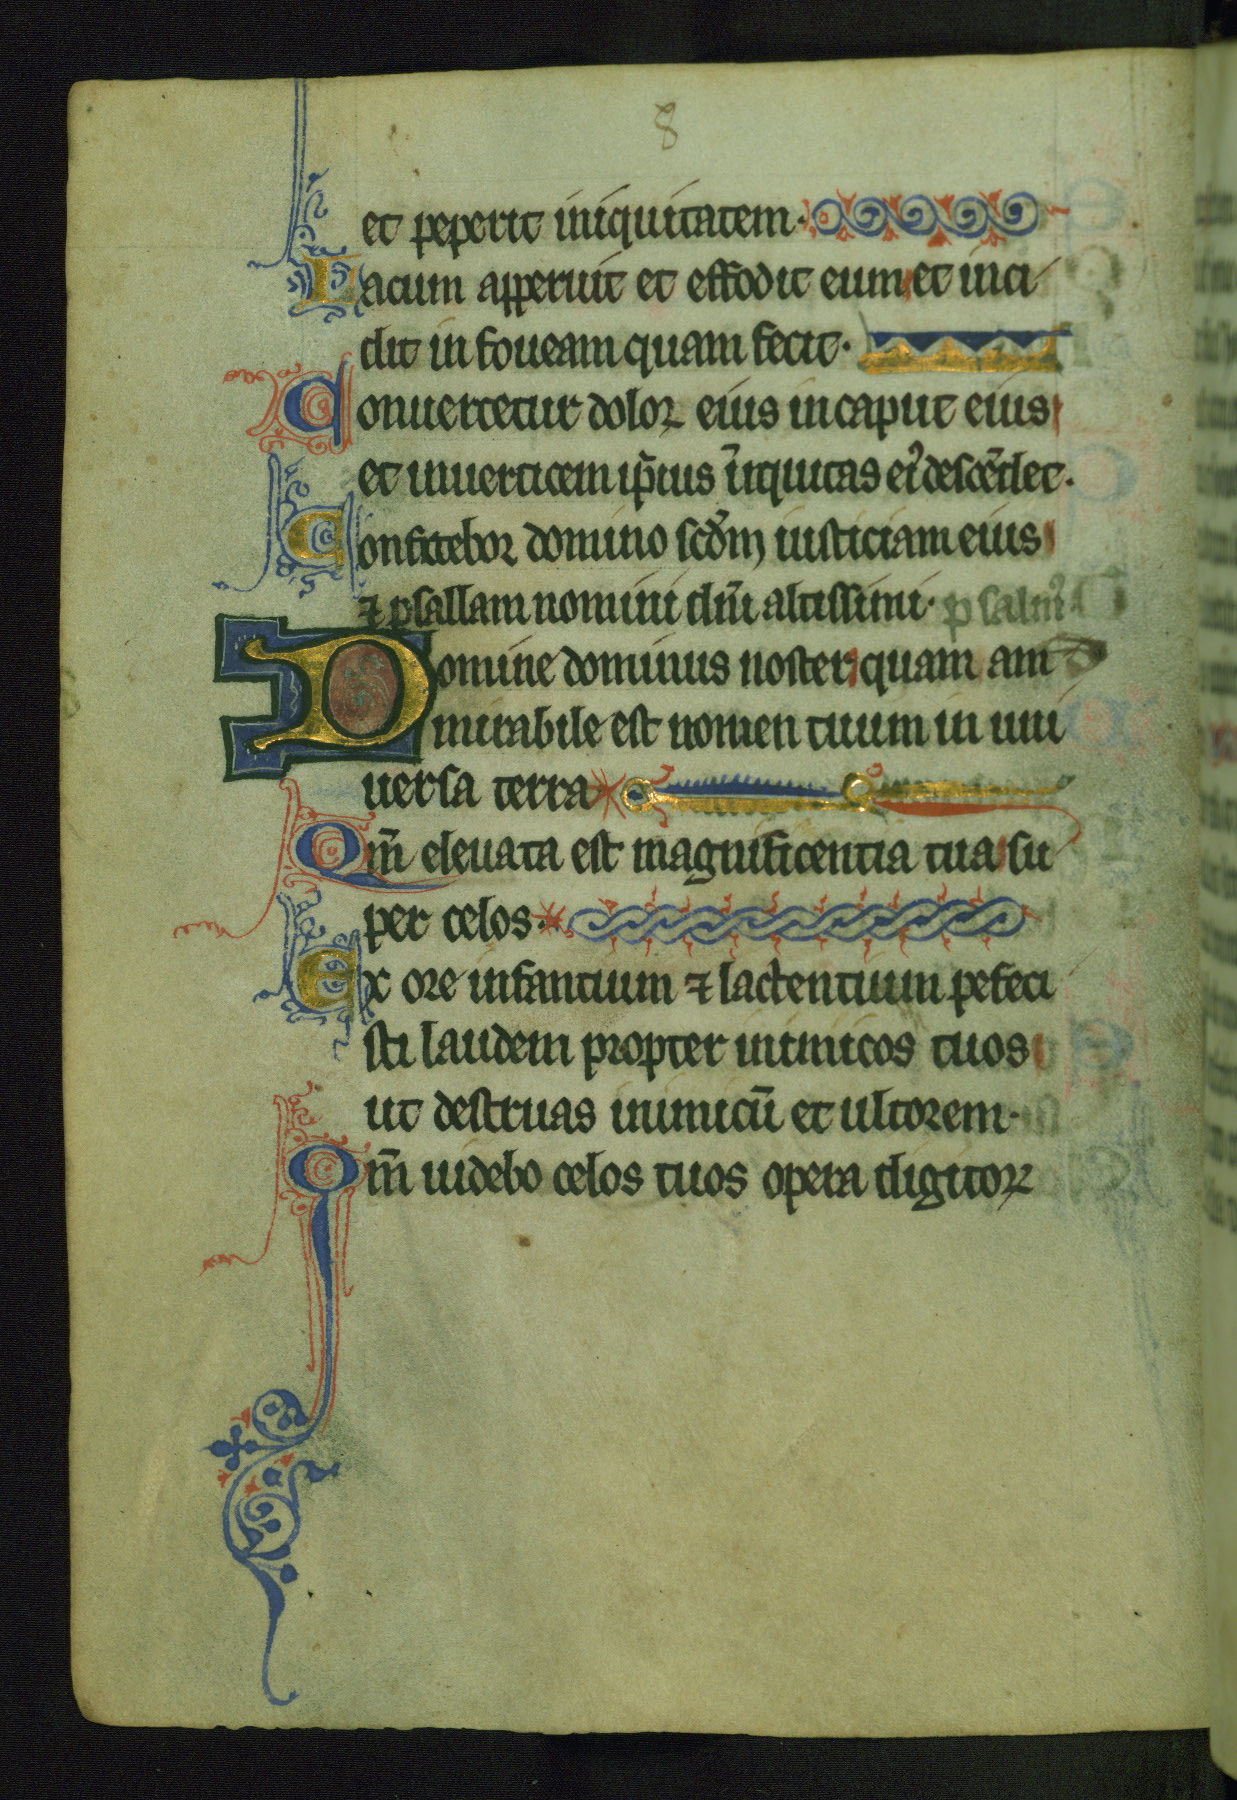 8
et peperit iniquitatem·
Lacum apperuit et effodit eum et inci
dit in foueam quam fecit·
Conuertetur dolor eius in caput eius
et in uerticem ip̄ius īiquitas ei᾽ descēdet·
Confitebor domino scd̄m iusticiam eius
⁊ psallam nomini dn̄i altissimi· psalm᾽
Domine dominus noster quam am
mirabile est nomen tuum in uni
uersa terra
Qm̄ eleuata est magnificentia tua su
per celos·
Ex ore infantium ⁊ lactentium pefeci
sti laudem propter inimicos tuos
ut destruas inimicū et ultorem·
Qm̄ uidebo celos tuos opera digitoꝝ